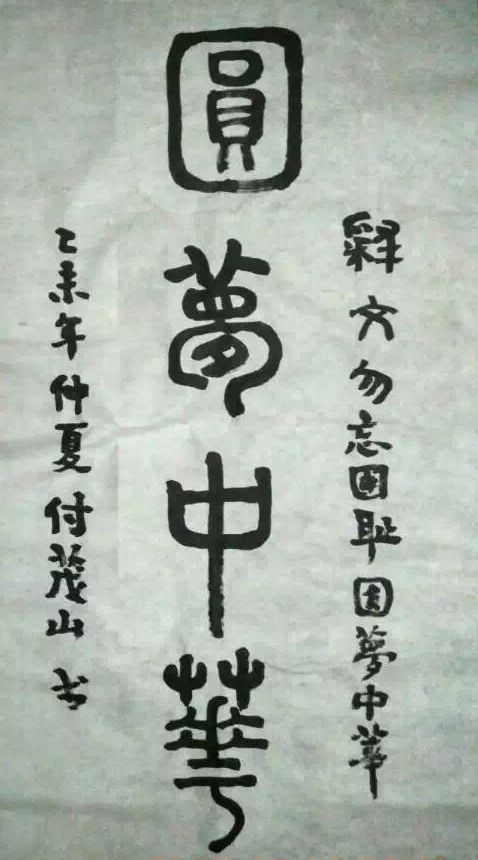 釋文勿忘国耻圆夢中華
圓夢中華
乙未年仲夏付茂山书